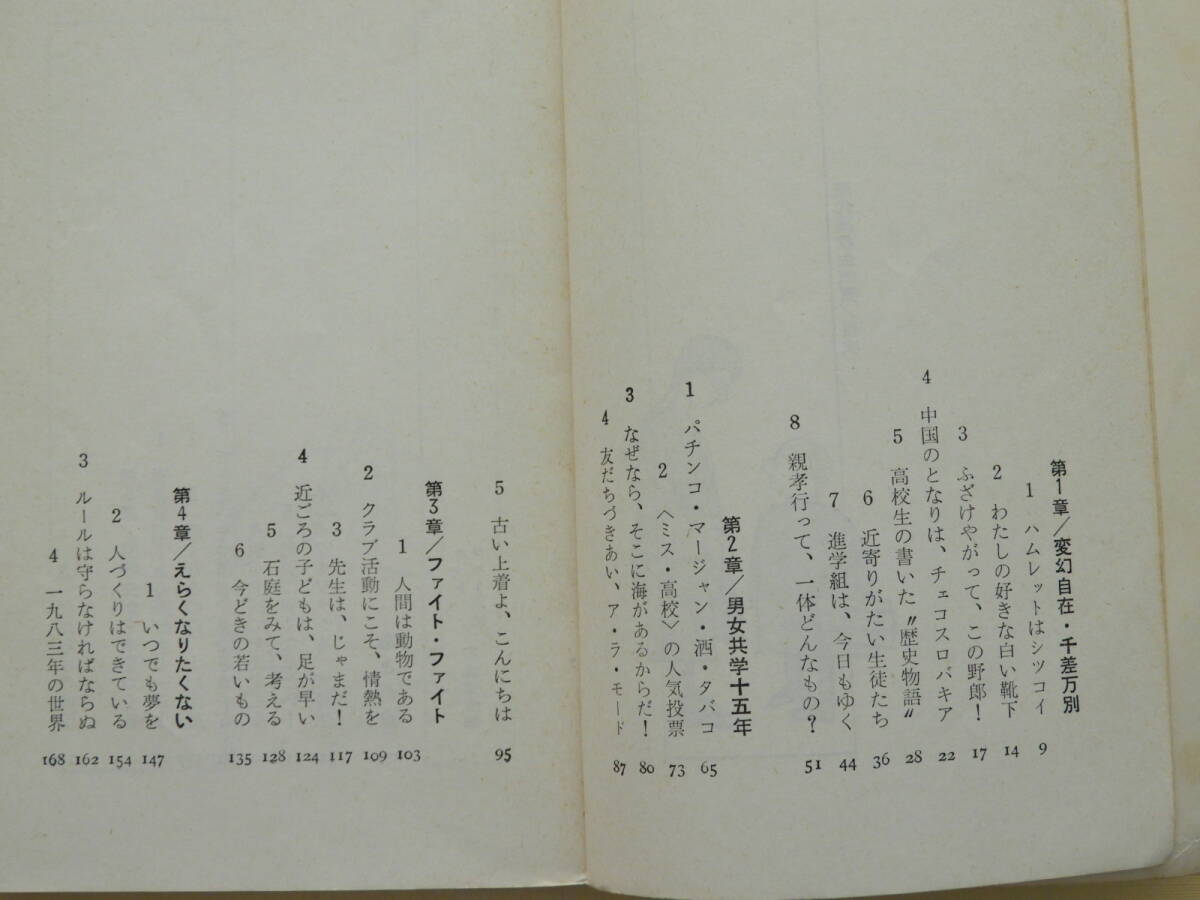 第1章/変幻自在・千差万別
1 ハムレットはシツコイ 9
2 わたしの好きな白い靴下 14
3 ふざけやがって、この野郎! 17
4 中国のとなりは、チェコスロバキア 22
5 高校生の書いた〝歴史物語〟 28
6 近寄りがたい生徒たち 36
7 進学組は、今日もゆく 44
8 親孝行って、一体どんなもの? 51
第2章/男女共学十五年
1 パチンコ・マージャン・酒・タバコ 65
2 〈ミス・高校〉の人気投票 73
3 なぜなら、そこに海があるからだ! 80
4 友だちづきあい、ア・ラ・モード 87
5 古い上着よ、こんにちは 95
第3章/ファイト・ファイト
1 人間は動物である 103
2 クラブ活動にこそ、情熱を 109
3 先生は、じゃまだ! 117
4 近ごろの子どもは、足が早い 124
5 石庭をみて、考える 128
6 今どきの若いもの 135
第4章/えらくなりたくない
1 いつでも夢を 147
2 人づくりはできている 154
3 ルールは守らなければならぬ 162
4 一九八三年の世界 168